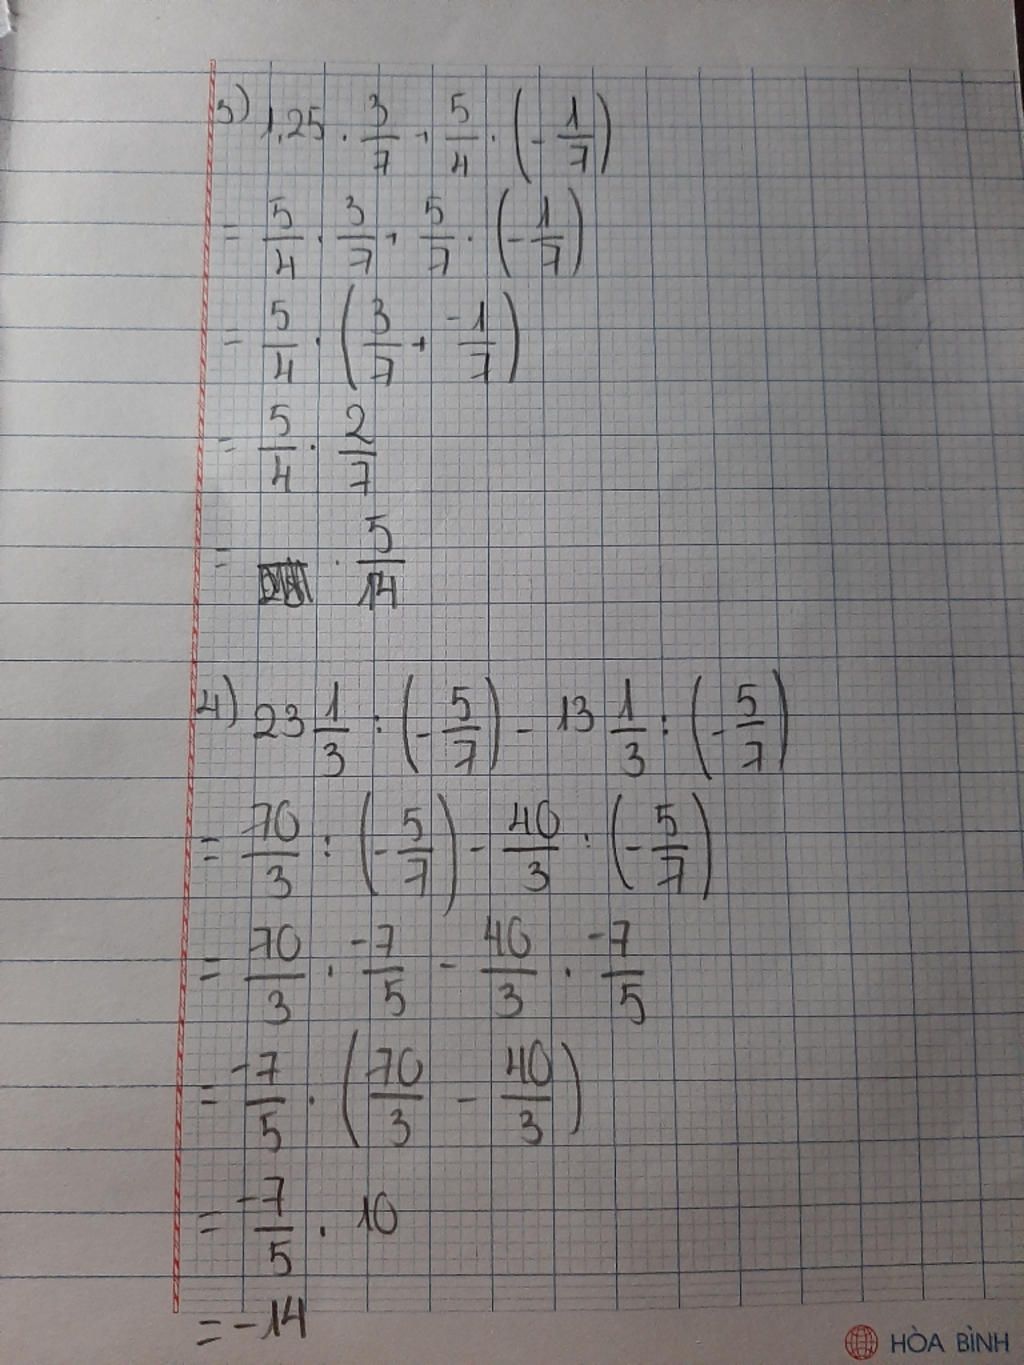 3) 1,25 . 3/7 + 5/4 . (- 1/7)
= 5/4 . 3/7 + 5/7 . (- 1/7)
= 5/4 . (3/7 + -1/7)
= 5/4 . 2/7
= . 5/14
4) 23 1/3 : (- 5/7) - 13 1/3 : (- 5/7)
= 70/3 : (- 5/7) - 40/3 : (- 5/7)
= 70/3 . -7/5 - 40/3 . -7/5
= -7/5 . (70/3 - 40/3)
= -7/5 . 10
= -14
HÒA BÌNH